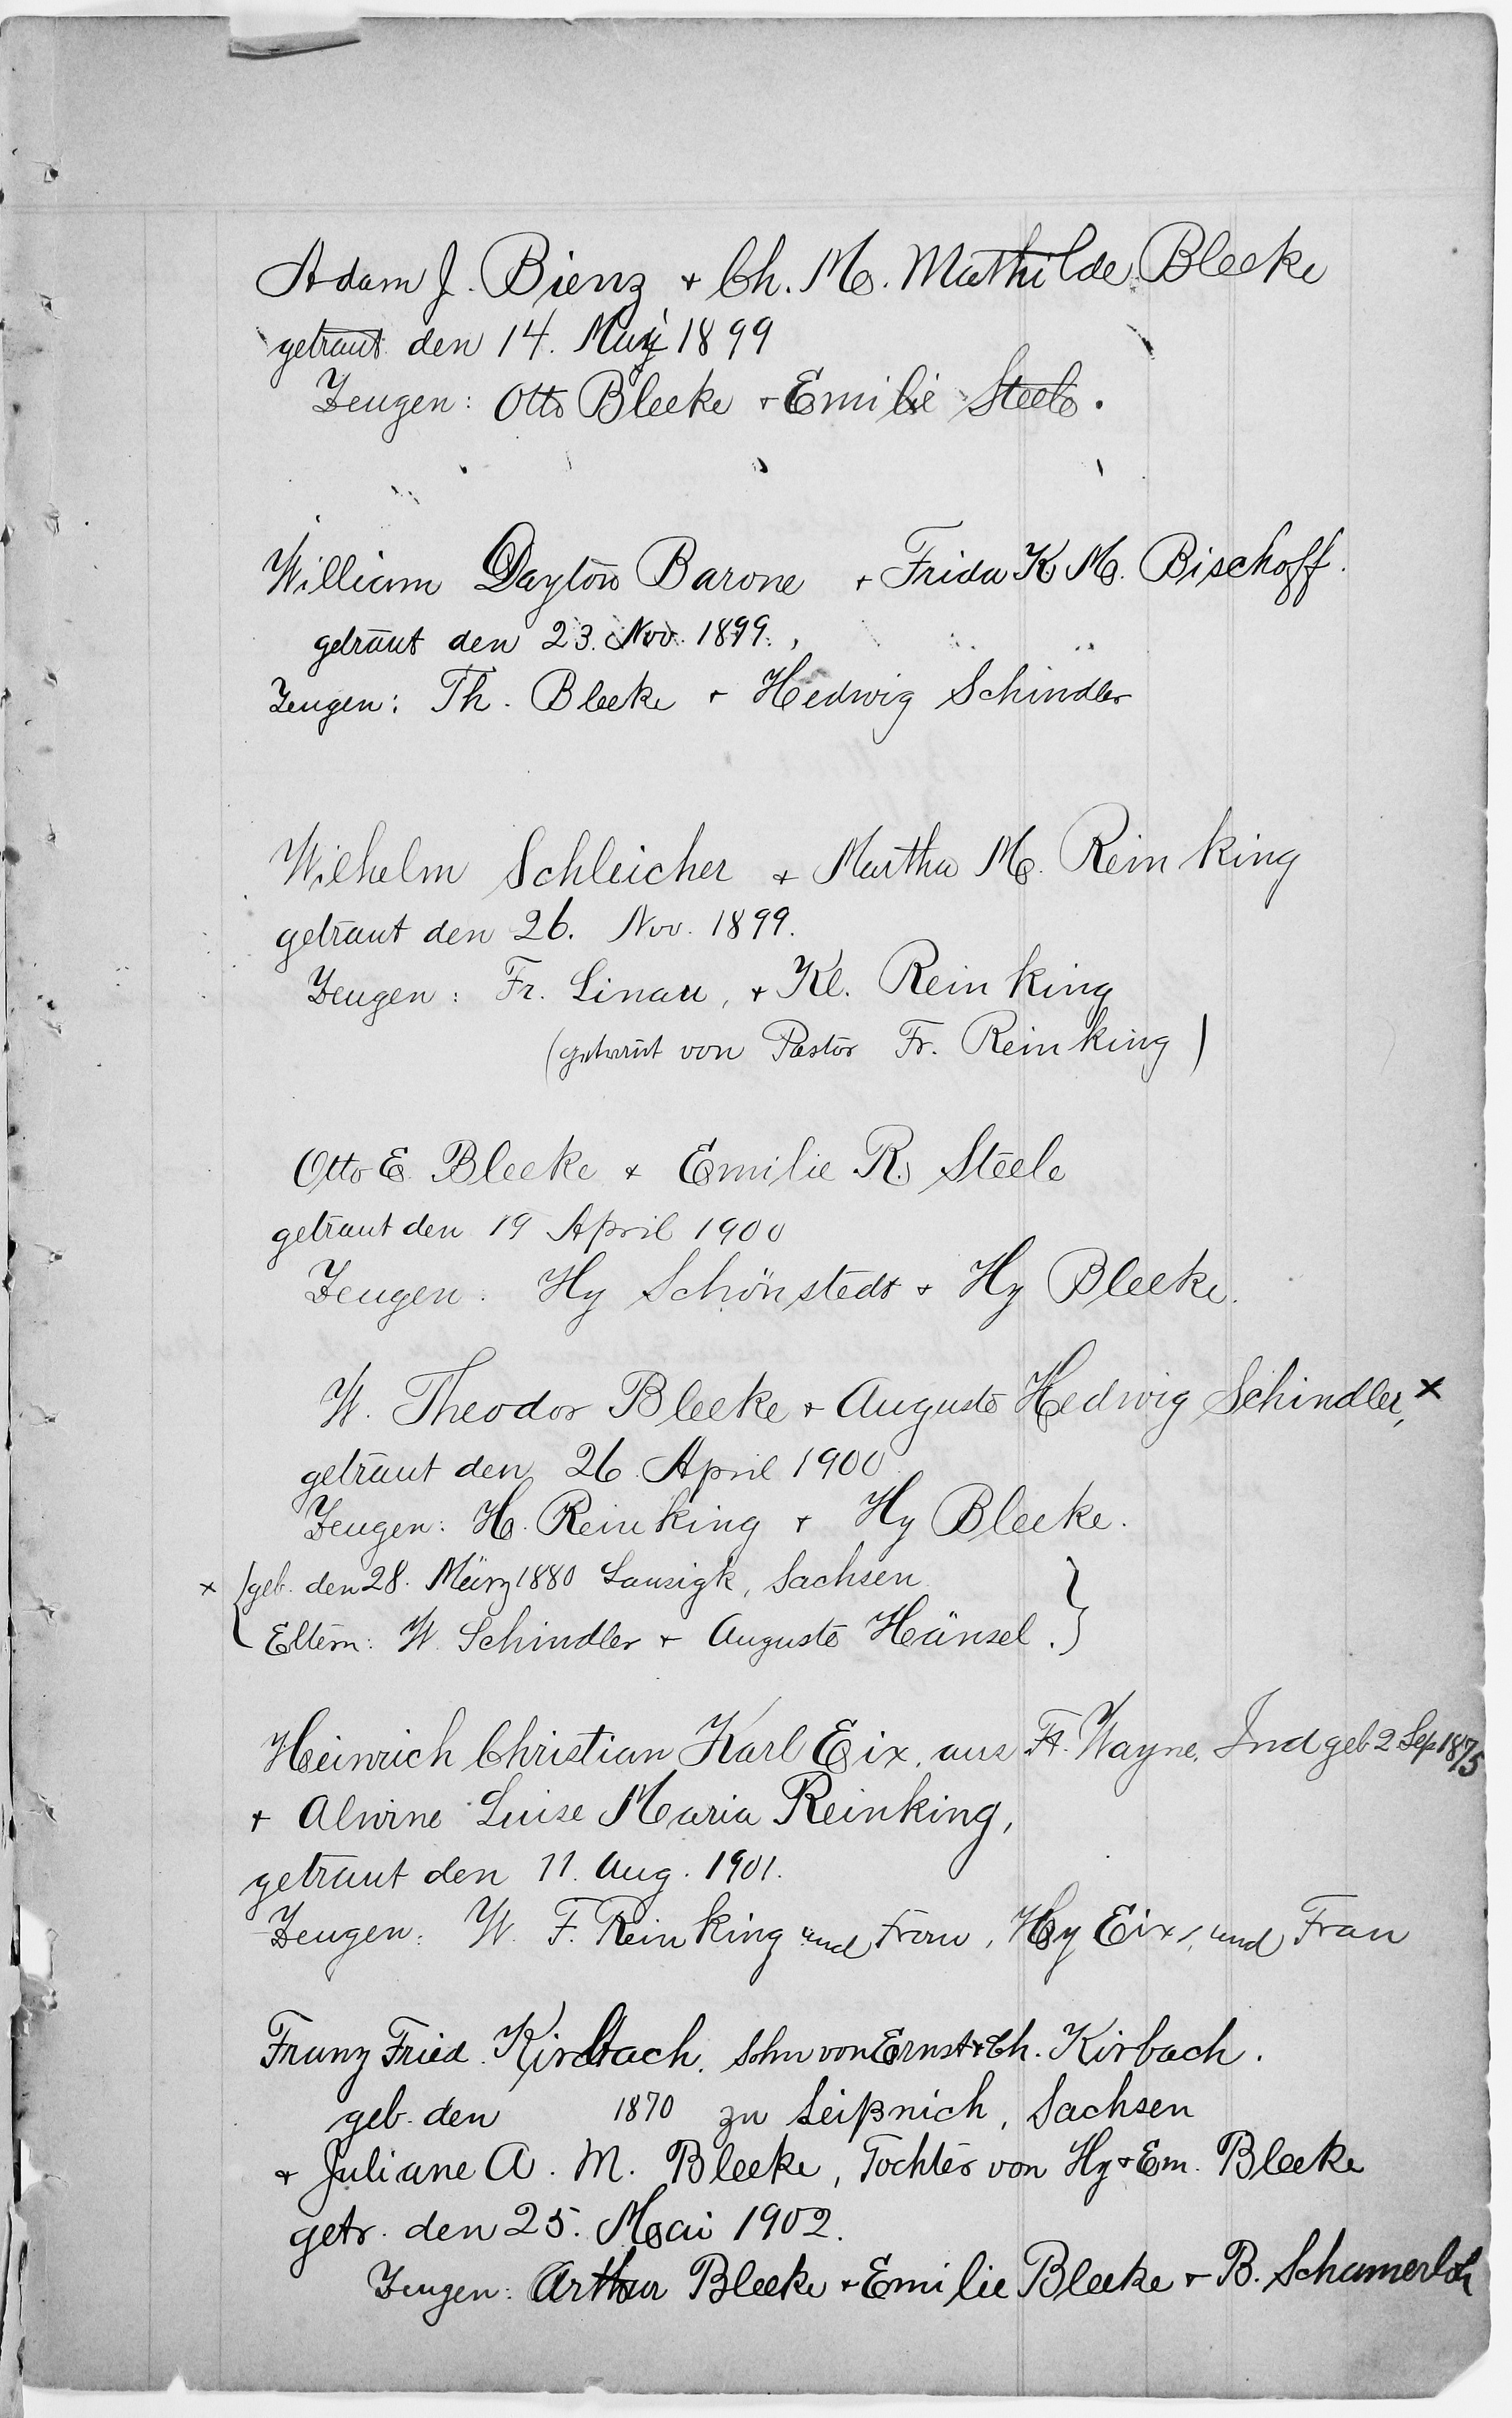 Adam J. Bienz + Ch. M. Mathilde Bleeke
getraut den 14. Mai 1899
Zeugen: Otto Bleeke + Emilie Steele.
William Dayton Barone + Frida K. M. Bischoff.
getraut den 23. Nov. 1899.
Zeugen: Th. Bleeke + Hedwig Schindler
Wilhelm Schleicher + Martha M. Reinking
getraut den 26. Nov. 1899.
Zeugen: Fr. Linau, + Kl. Reinking
(getraut von Pastor Fr. Reinking)
Otto E. Bleeke + Emilie R. Steele
getraut den 19 April 1900
Zeugen: Hy Schönstedt + Hy Bleeke.
W. Theodor Bleeke + Auguste Hedwig Schindler, x
getraut den 26. April 1900
Zeugen: H. Reinking + Hy Bleeke.
x {geb. den 28. März 1880 Lausigk, Sachsen
Eltern: W. Schindler + Auguste Hänsel.}
Heinrich Christian Karl Eix, aus Ft. Wayne, Ind geb 2 Sep 1875
+ Alwine Luise Maria Reinking,
getraut den 11. Aug. 1901.
Zeugen: W. F. Reinking und Frau, Hy Eix, und Frau
Franz Fried. Kirbach, Sohn von Ernst + Ch. Kirbach.
geb. den 1870 zu Leißnich, Sachsen
+ Juliane A. M. Bleeke, Tochter von Hy + Em. Bleeke
getr. den 25. Mai 1902.
Zeugen: Arthur Bleeke + Emilie Bleeke + B. Schamerloh